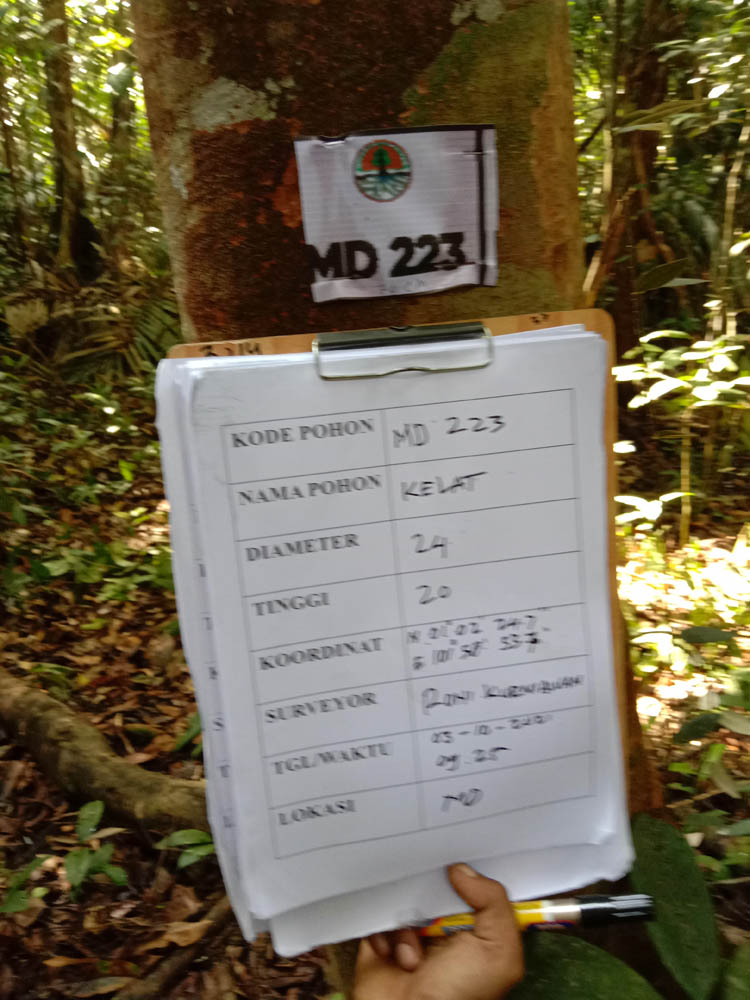 MD 223
KODE POHON MD 223
NAMA POHON KELAT
DIAMETER 24
TINGGI 20
KOORDINAT N 01° 02' 24.7"
E 101° 58'
SURVEYOR RONI KURNIAWAN
TGL/WAKTU 03-10-
09.25
LOKASI MD